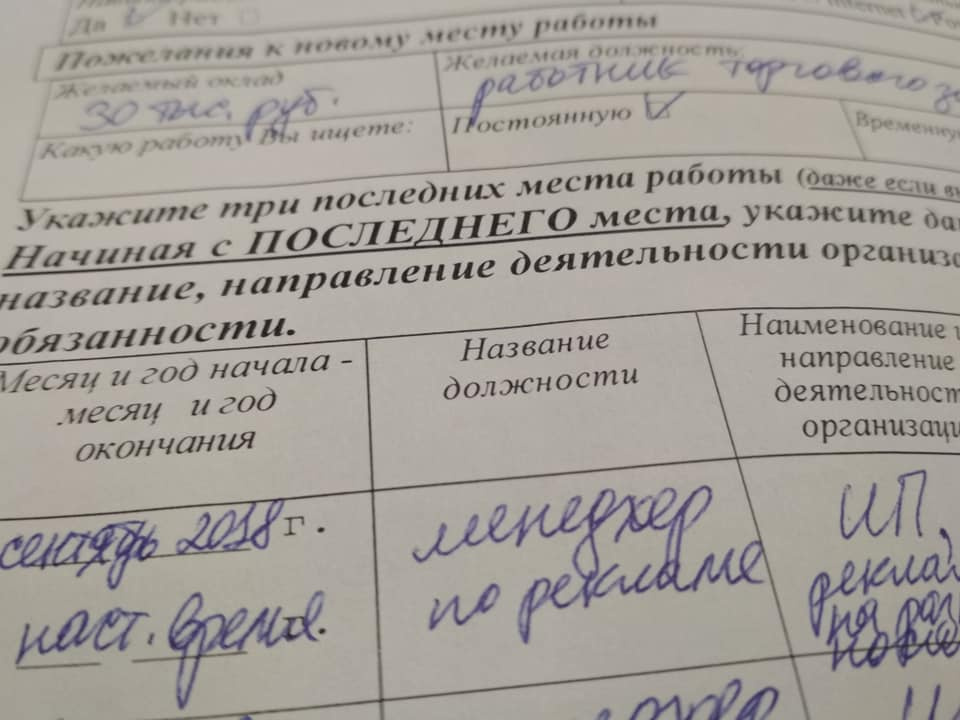 Да Нет
Internet
Пожелания к новому месту работы
Желаемый оклад
30 тыс. руб.
Желаемая должность:
работник торгового за
Какую работу Вы ищете:
Постоянную
Временну
Укажите три последних места работы (даже если вы
Начиная с ПОСЛЕДНЕГО места, укажите да
название, направление деятельности организа
обязанности.
Месяц и год начала -
месяц и год
окончания
Название
должности
Наименование и
направление
деятельност
организаци
сентябрь 2018 г.
наст. время
менеджер
по рекламе
ИП,
рекла
на раз